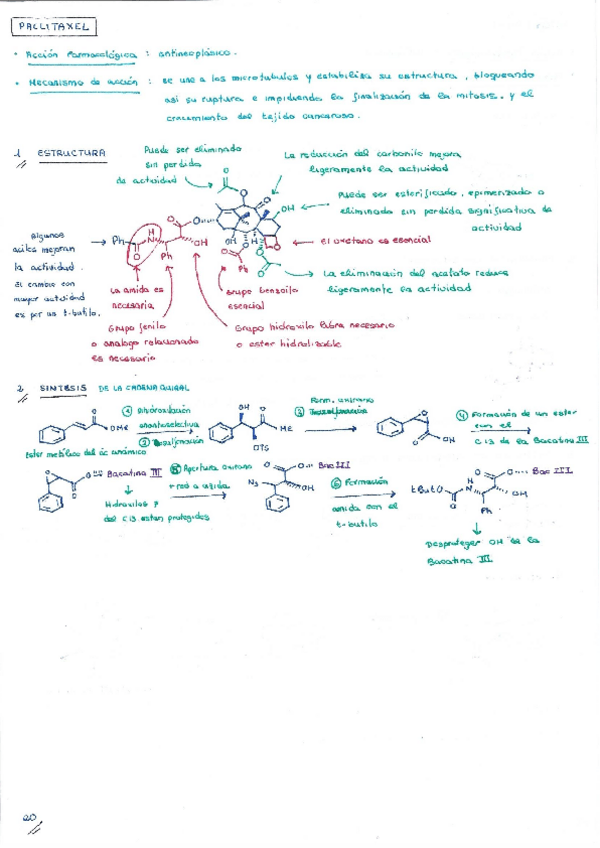 PACLITAXEL
• Acción farmacológica : antineoplásico.
• Mecanismo de acción : se une a los microtubulos y estabiliza su estructura, bloqueando
asi su ruptura e impidiendo la finalización de la mitosis. y el
crecimiento del tejido canceroso.
1 ESTRUCTURA
Puede ser eliminado
sin perdida
de actividad
La reducción del carbonilo mejora
ligeramente la actividad
Puede ser esterificado, epimerizado o
eliminado sin perdida significativa de
actividad
el oxetano es esencial
La eliminación del acetato reduce
ligeramente la actividad
Algunos
acilos mejoran
la actividad.
El cambio con
mayor actividad
es por un t-butilo.
O
O
O
O
OH
Ph
N
H
O
Ph
OH
O
OH
H
O
O
Ph
O
O
La amida es
necesaria
Grupo fenilo
o analogo relacionado
es necesario
Grupo benzoilo
esencial
Grupo hidroxilo libre necesario
o ester hidrolizable
2 SINTESIS DE LA CADENA QUIRAL
① Dihidroxilación
enantioselectiva
② Tosilformación
O
OMe
Ester metílico del ác cinámico
OH
O
ME
OTS
Form. oxirano
③
O
O
OH
④ Formación de un ester
con el
C13 de la Bacatina III
O
O
Bacatina III
Hidroxilos 7
del C13 estan protegidos
⑤ Apertura oxirano
+ red a azida
O
O.... Bac III
N3
OH
⑥ Formación
amida con el
t-butilo
O
O.... Bac III
tButO
N
H
O
OH
Ph
Desproteger OH de la
Bacatina III
20